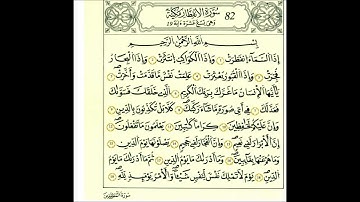 82 سُورَةُ الِانْفِطَارِ مَكِّيَّةٌ
بِسْمِ اللَّهِ الرَّحْمَٰنِ الرَّحِيمِ
إِذَا السَّمَاءُ انْفَطَرَتْ وَإِذَا الْكَوَاكِبُ انْتَثَرَتْ وَإِذَا الْبِحَارُ
فُجِّرَتْ وَإِذَا الْقُبُورُ بُعْثِرَتْ عَلِمَتْ نَفْسٌ مَا قَدَّمَتْ وَأَخَّرَتْ
يَا أَيُّهَا الْإِنْسَانُ مَا غَرَّكَ بِرَبِّكَ الْكَرِيمِ الَّذِي خَلَقَكَ فَسَوَّاكَ
فَعَدَلَكَ فِي أَيِّ صُورَةٍ مَا شَاءَ رَكَّبَكَ كَلَّا بَلْ تُكَذِّبُونَ بِالدِّينِ
وَإِنَّ عَلَيْكُمْ لَحَافِظِينَ كِرَامًا كَاتِبِينَ يَعْلَمُونَ مَا تَفْعَلُونَ
إِنَّ الْأَبْرَارَ لَفِي نَعِيمٍ وَإِنَّ الْفُجَّارَ لَفِي جَحِيمٍ يَصْلَوْنَهَا يَوْمَ الدِّينِ
وَمَا هُمْ عَنْهَا بِغَائِبِينَ وَمَا أَدْرَاكَ مَا يَوْمُ الدِّينِ ثُمَّ مَا أَدْرَاكَ مَا يَوْمُ
الدِّينِ يَوْمَ لَا تَمْلِكُ نَفْسٌ لِنَفْسٍ شَيْئًا وَالْأَمْرُ يَوْمَئِذٍ لِلَّهِ